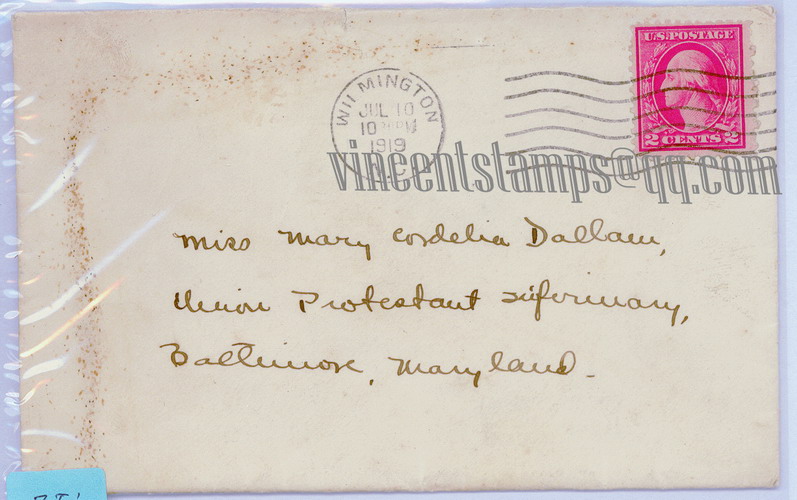 U.S. POSTAGE
2 CENTS 2
WILMINGTON
JUL 10
1919
vincentstamps@qq.com
Miss Mary Cordelia Dallam,
Union Protestant Infirmary,
Baltimore, Maryland.